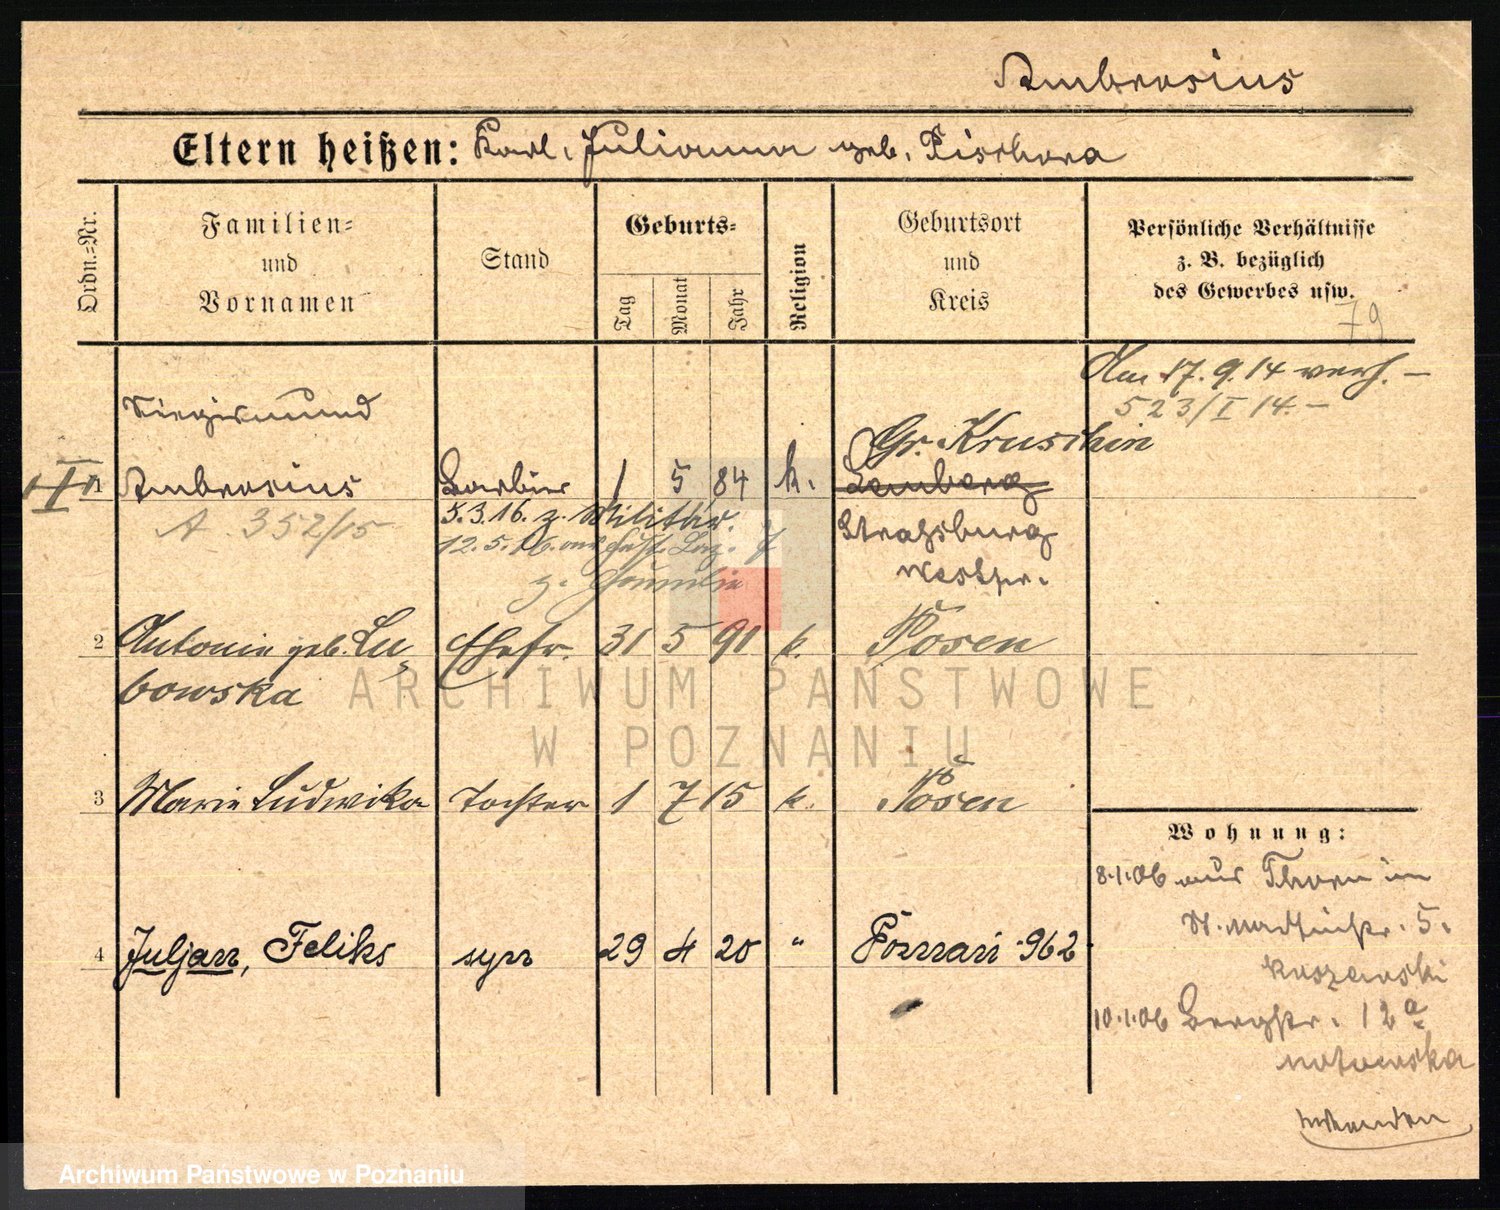 Ambrosius
Eltern heißen: Karl, Julianna geb. Pischora
Ordn.-Nr.
Familien-
und
Vornamen
Stand
Geburts-
Tag
Monat
Jahr
Religion
Geburtsort
und
Kreis
Persönliche Verhältnisse
z. B. bezüglich
des Gewerbes usw.
79
Am 17.9.14 verh. –
523/I 14. –
Siegismund
Gr. Kruschin
1 Ambrosius Barbier 1 5 84 k. Lemberg
A 352/15
5.3.16. z. Militär.
12.5.16.
z. Familie
Strasburg
Westpr.
2 Antonie geb. Lu- Ehefr. 31 5 91 k. Posen
bowska
3 Marie Ludwika Tochter 1 7 15 k. Posen
4 Juljan, Feliks syn 29 4 20 " Poznań 962
Wohnung:
8.1.06 aus Thorn in
St. Martinstr. 5.
10.1.06 Bergstr. 12a
ARCHIWUM PAŃSTWOWE
W POZNANIU
Archiwum Państwowe w Poznaniu